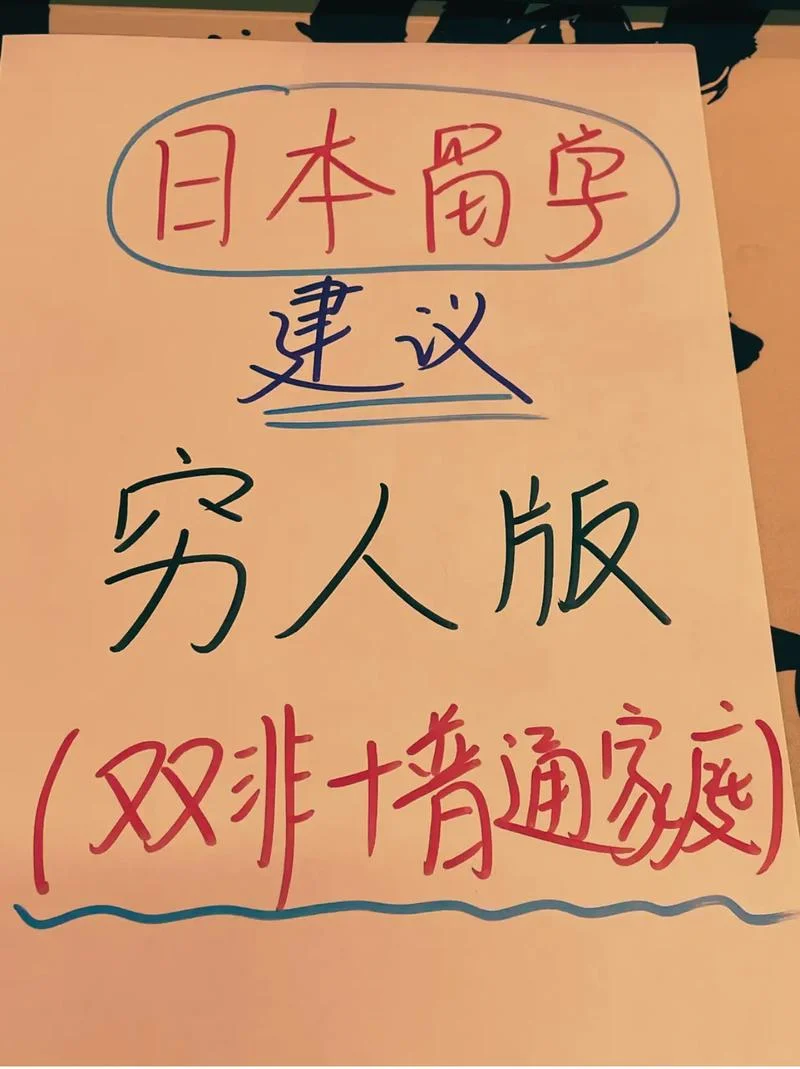 日本留学
建议
穷人版
(双非+普通家庭)